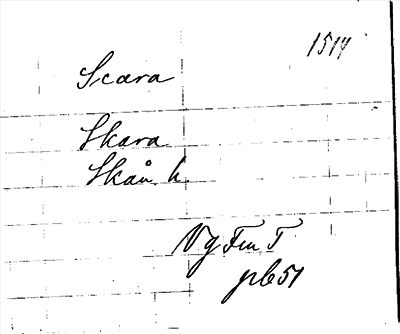 1514
Scara
Skara
Skån h.
Vg Fm T
pl 651